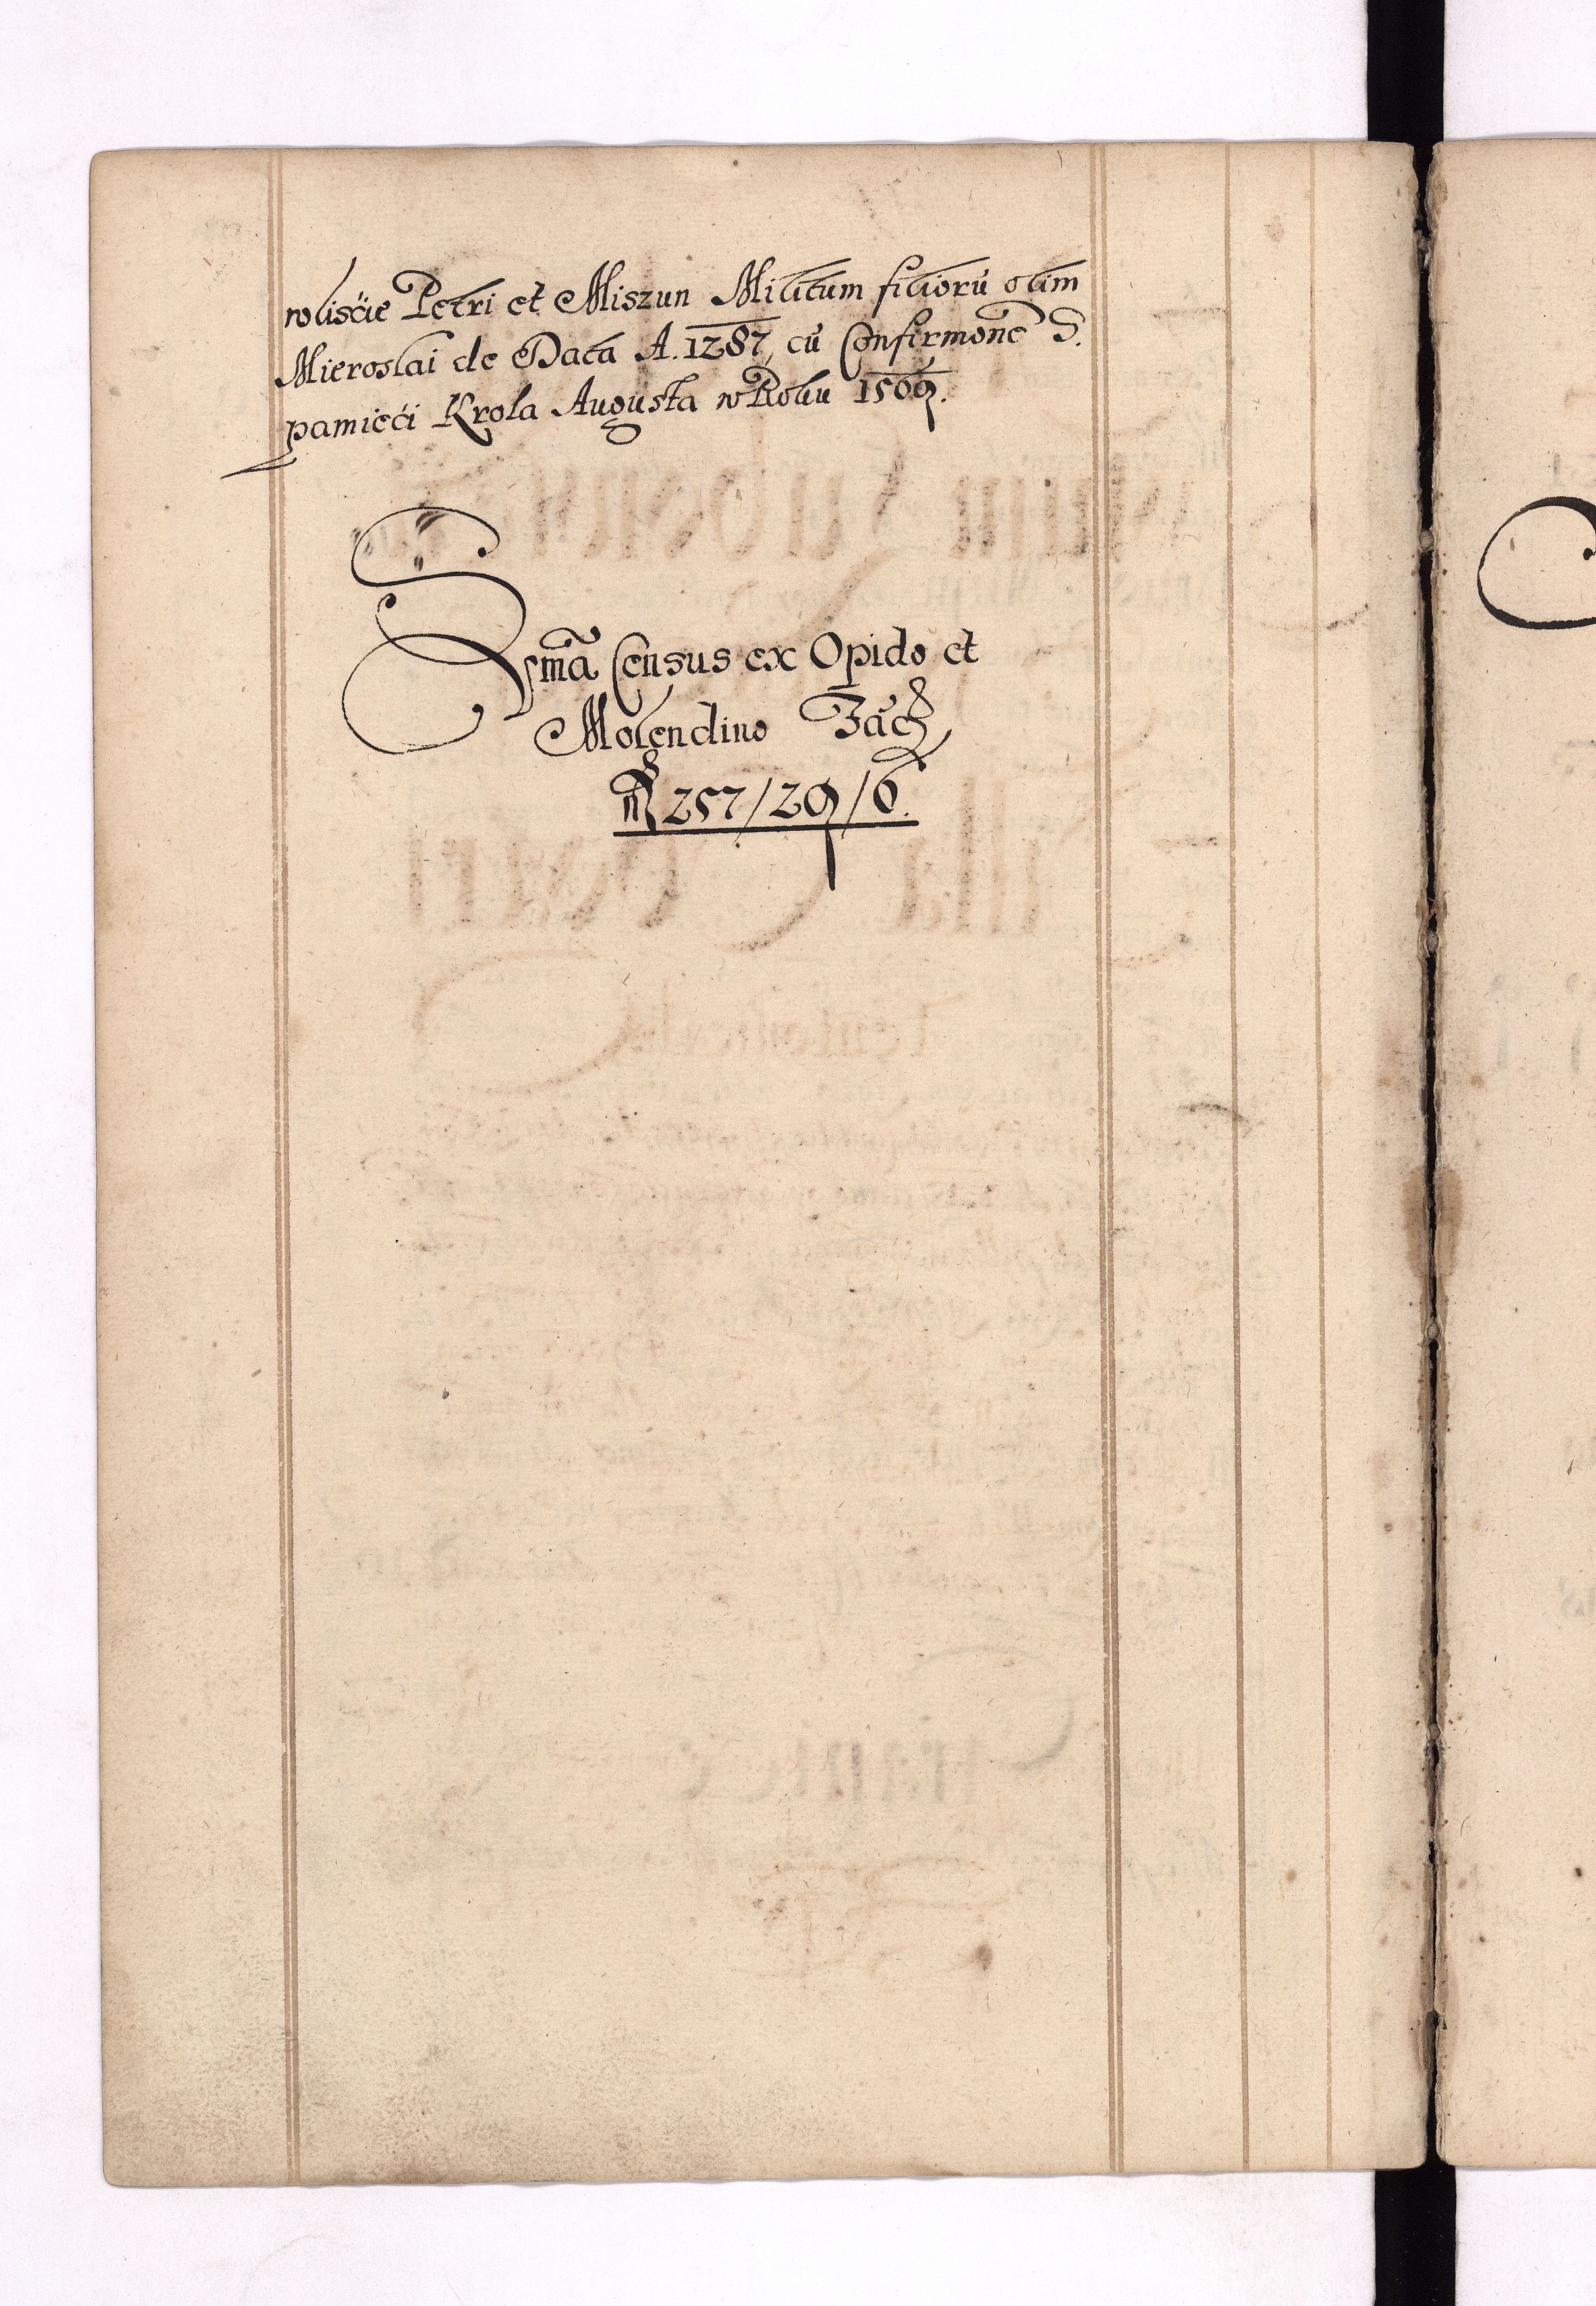 w liscie Petri et Miszun Militum filiorū olim
Mieroslai de Data A. 1287, cū Confirmōne S.
pamieci Krola Augusta w Roku 1569.
Sm̄a Census ex Opido et
Molendino Facit
257/29/6.